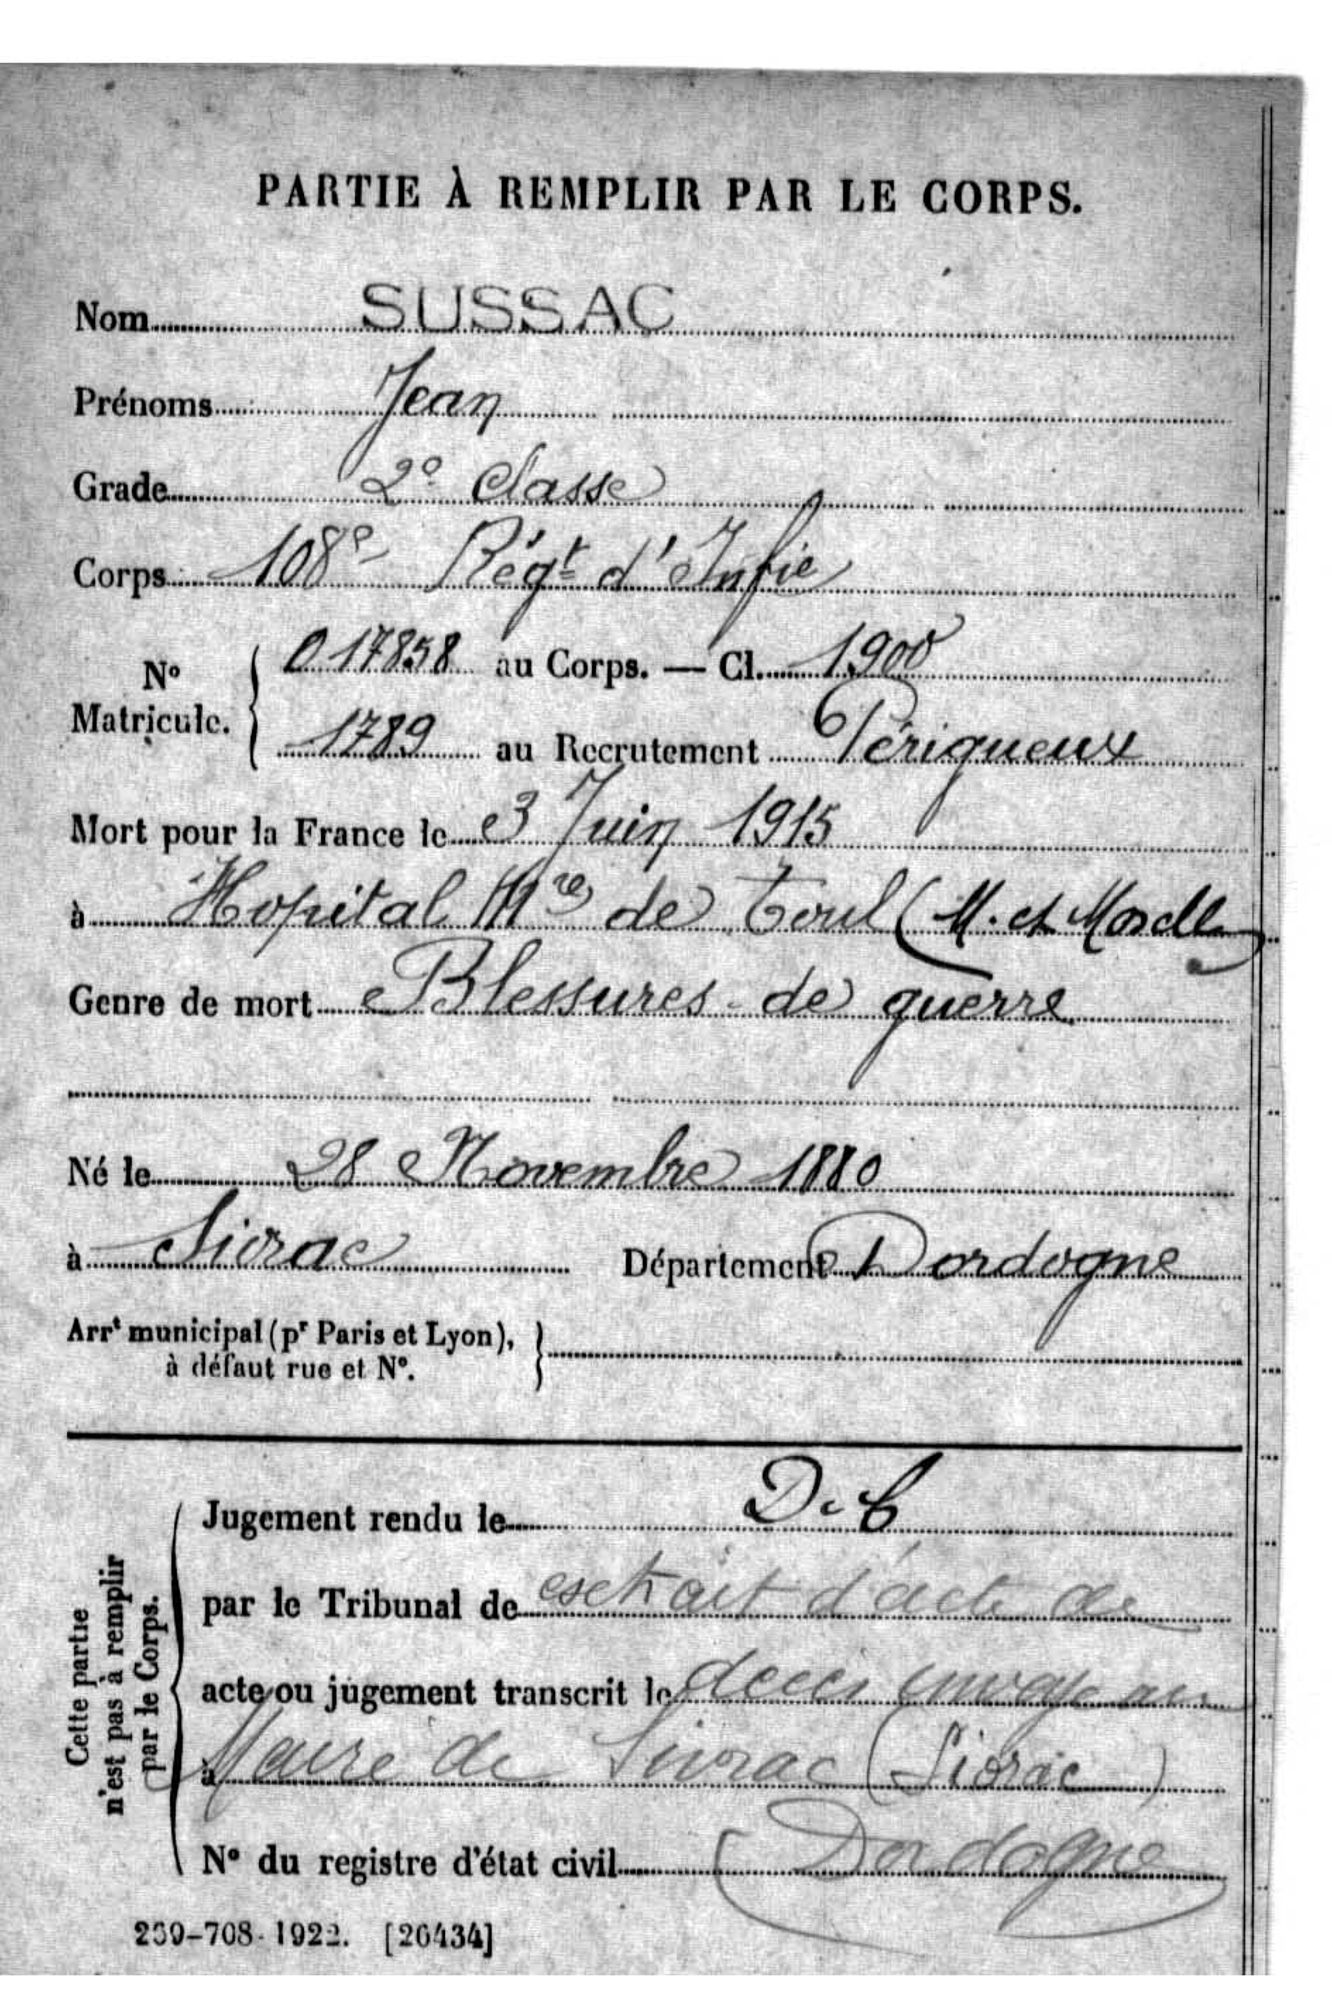 PARTIE À REMPLIR PAR LE CORPS.
Nom SUSSAC
Prénoms Jean
Grade 2e Classe
Corps 108e Régt d'Infie
No Matricule. 017858 au Corps. — Cl. 1900
1789 au Recrutement Périgueux
Mort pour la France le 3 Juin 1915
à Hopital Mre de Toul (M. et Moselle
Genre de mort Blessures de guerre
Né le 28 Novembre 1880
à Siorac Département Dordogne
Arrt municipal (pr Paris et Lyon),
à défaut rue et No.
Cette partie
n'est pas à remplir
par le Corps.
Jugement rendu le
par le Tribunal de extrait d'acte de
acte ou jugement transcrit le décès envoyé au
à Maire de Sivrac (Siorac)
No du registre d'état civil (Dordogne)
239-708-1922. [26434]